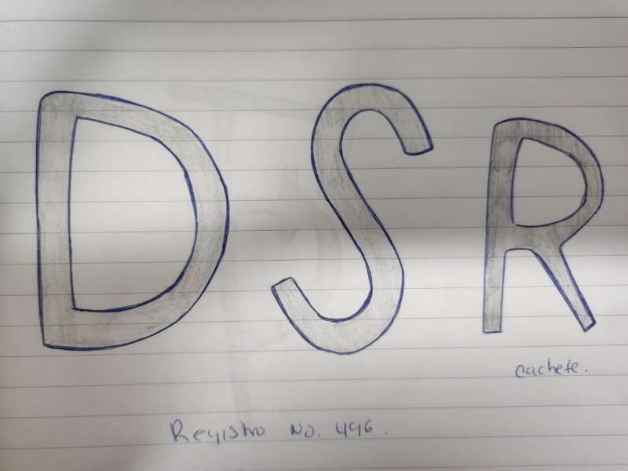 DSR
cachete.
Registro No. 446.